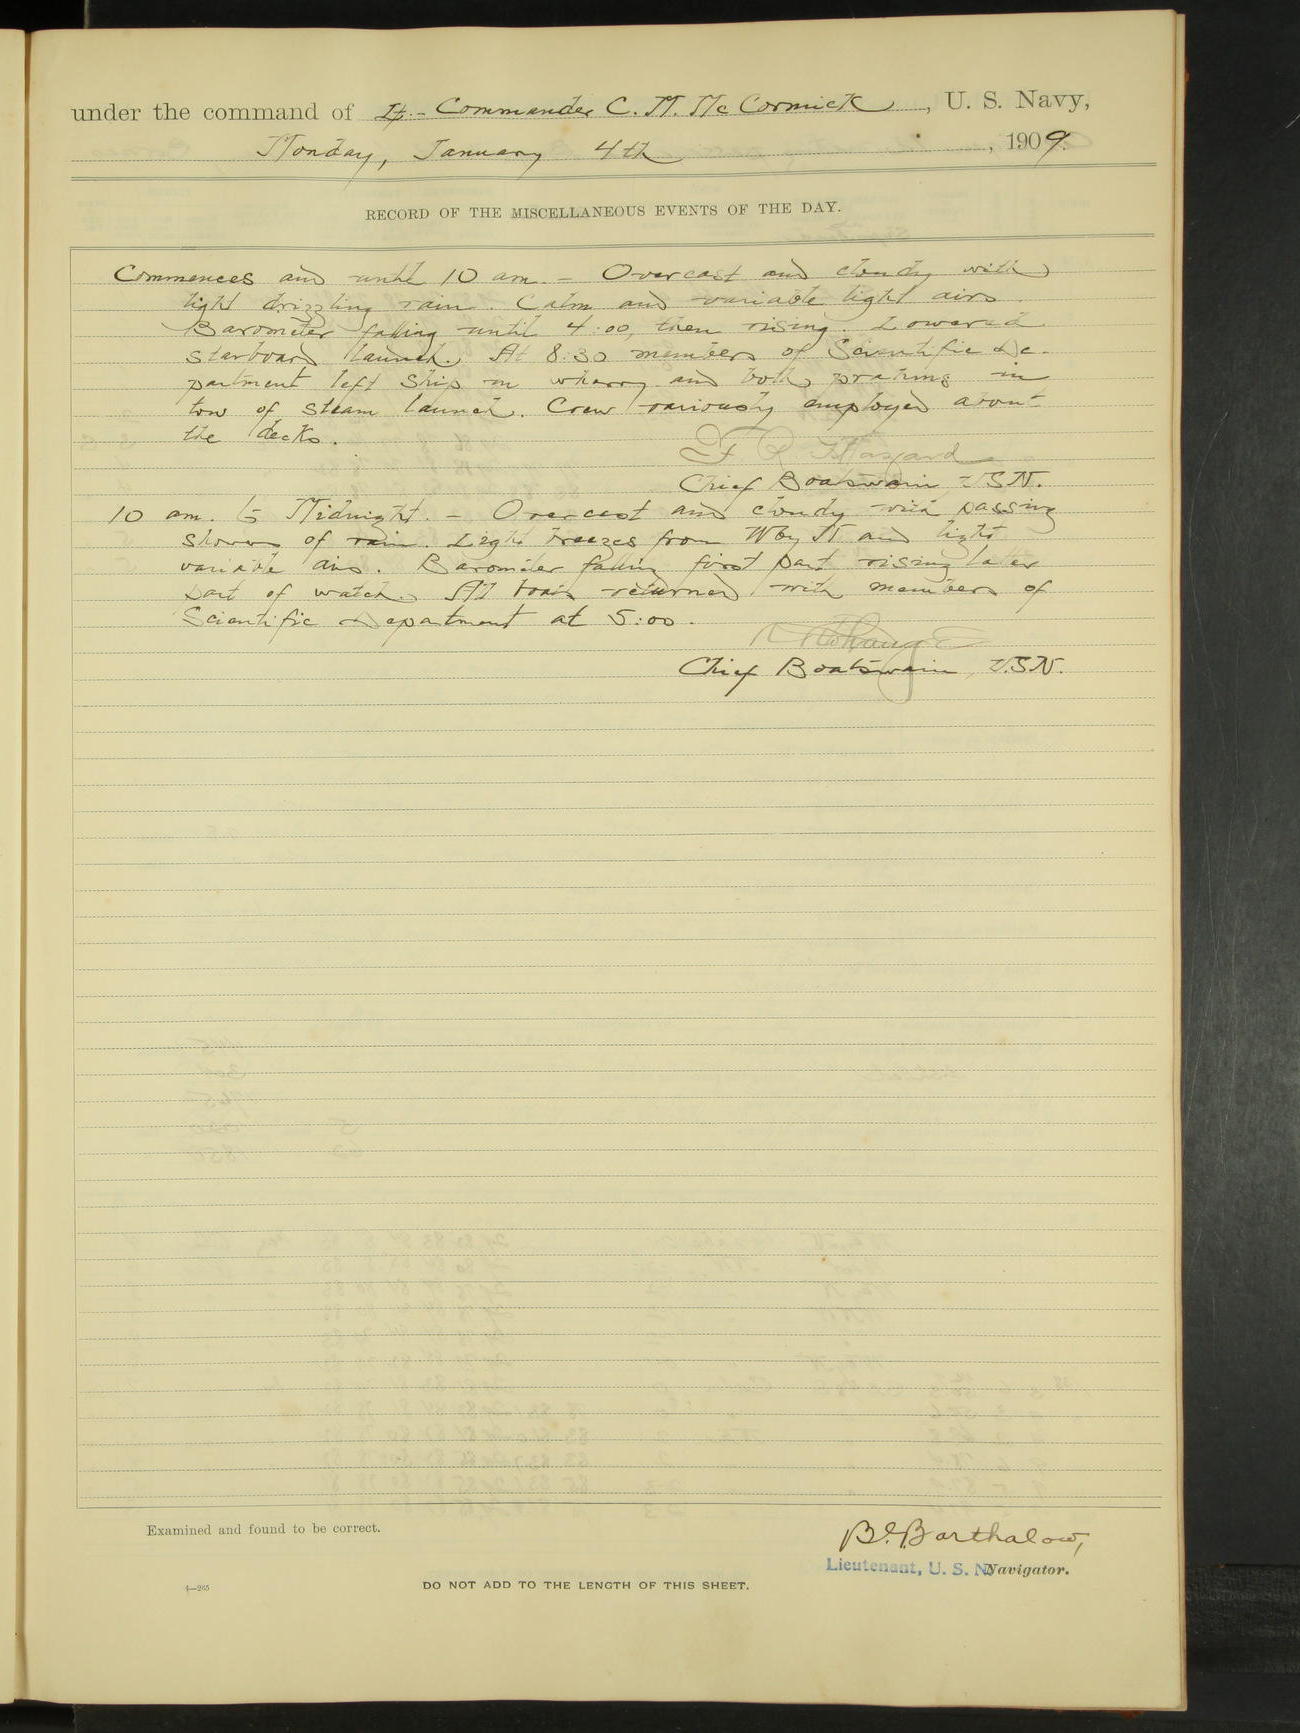 under the command of Lt.- Commander C. M. McCormick, U. S. Navy,
Monday, January 4th, 1909.
RECORD OF THE MISCELLANEOUS EVENTS OF THE DAY.
Commences and until 10 am. - Overcast and cloudy with
light drizzling rain. Calm and variable light airs.
Barometer falling until 4:00, then rising. Lowered
starboard launch. At 8:30 members of Scientific De-
partment left ship in wherry and both prahms in
tow of steam launch. Crew variously employed about
the decks.
F R Hazard
Chief Boatswain, U.S.N.
10 am. to Midnight. - Overcast and cloudy with passing
showers of rain. Light breezes from W by N and light
variable airs. Barometer falling first part rising later
part of watch. All boats returned with members of
Scientific Department at 5:00.
Chief Boatswain, U.S.N.
Examined and found to be correct.
B. Barthalow,
Lieutenant, U. S. N. Navigator.
4—265
DO NOT ADD TO THE LENGTH OF THIS SHEET.